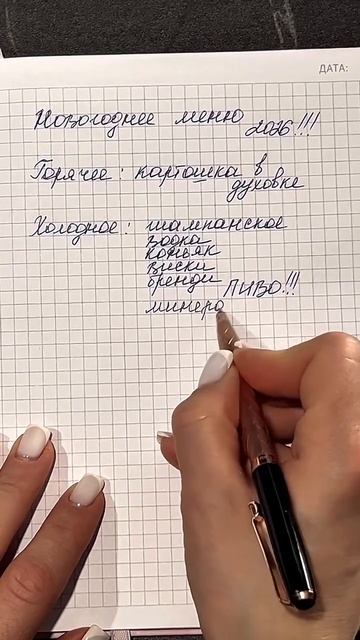 ДАТА:
Новогоднее меню 2026!!!
Горячее: картошка в
духовке
Холодное: шампанское
водка
коньяк
виски
бренди ПИВО!!!
минера